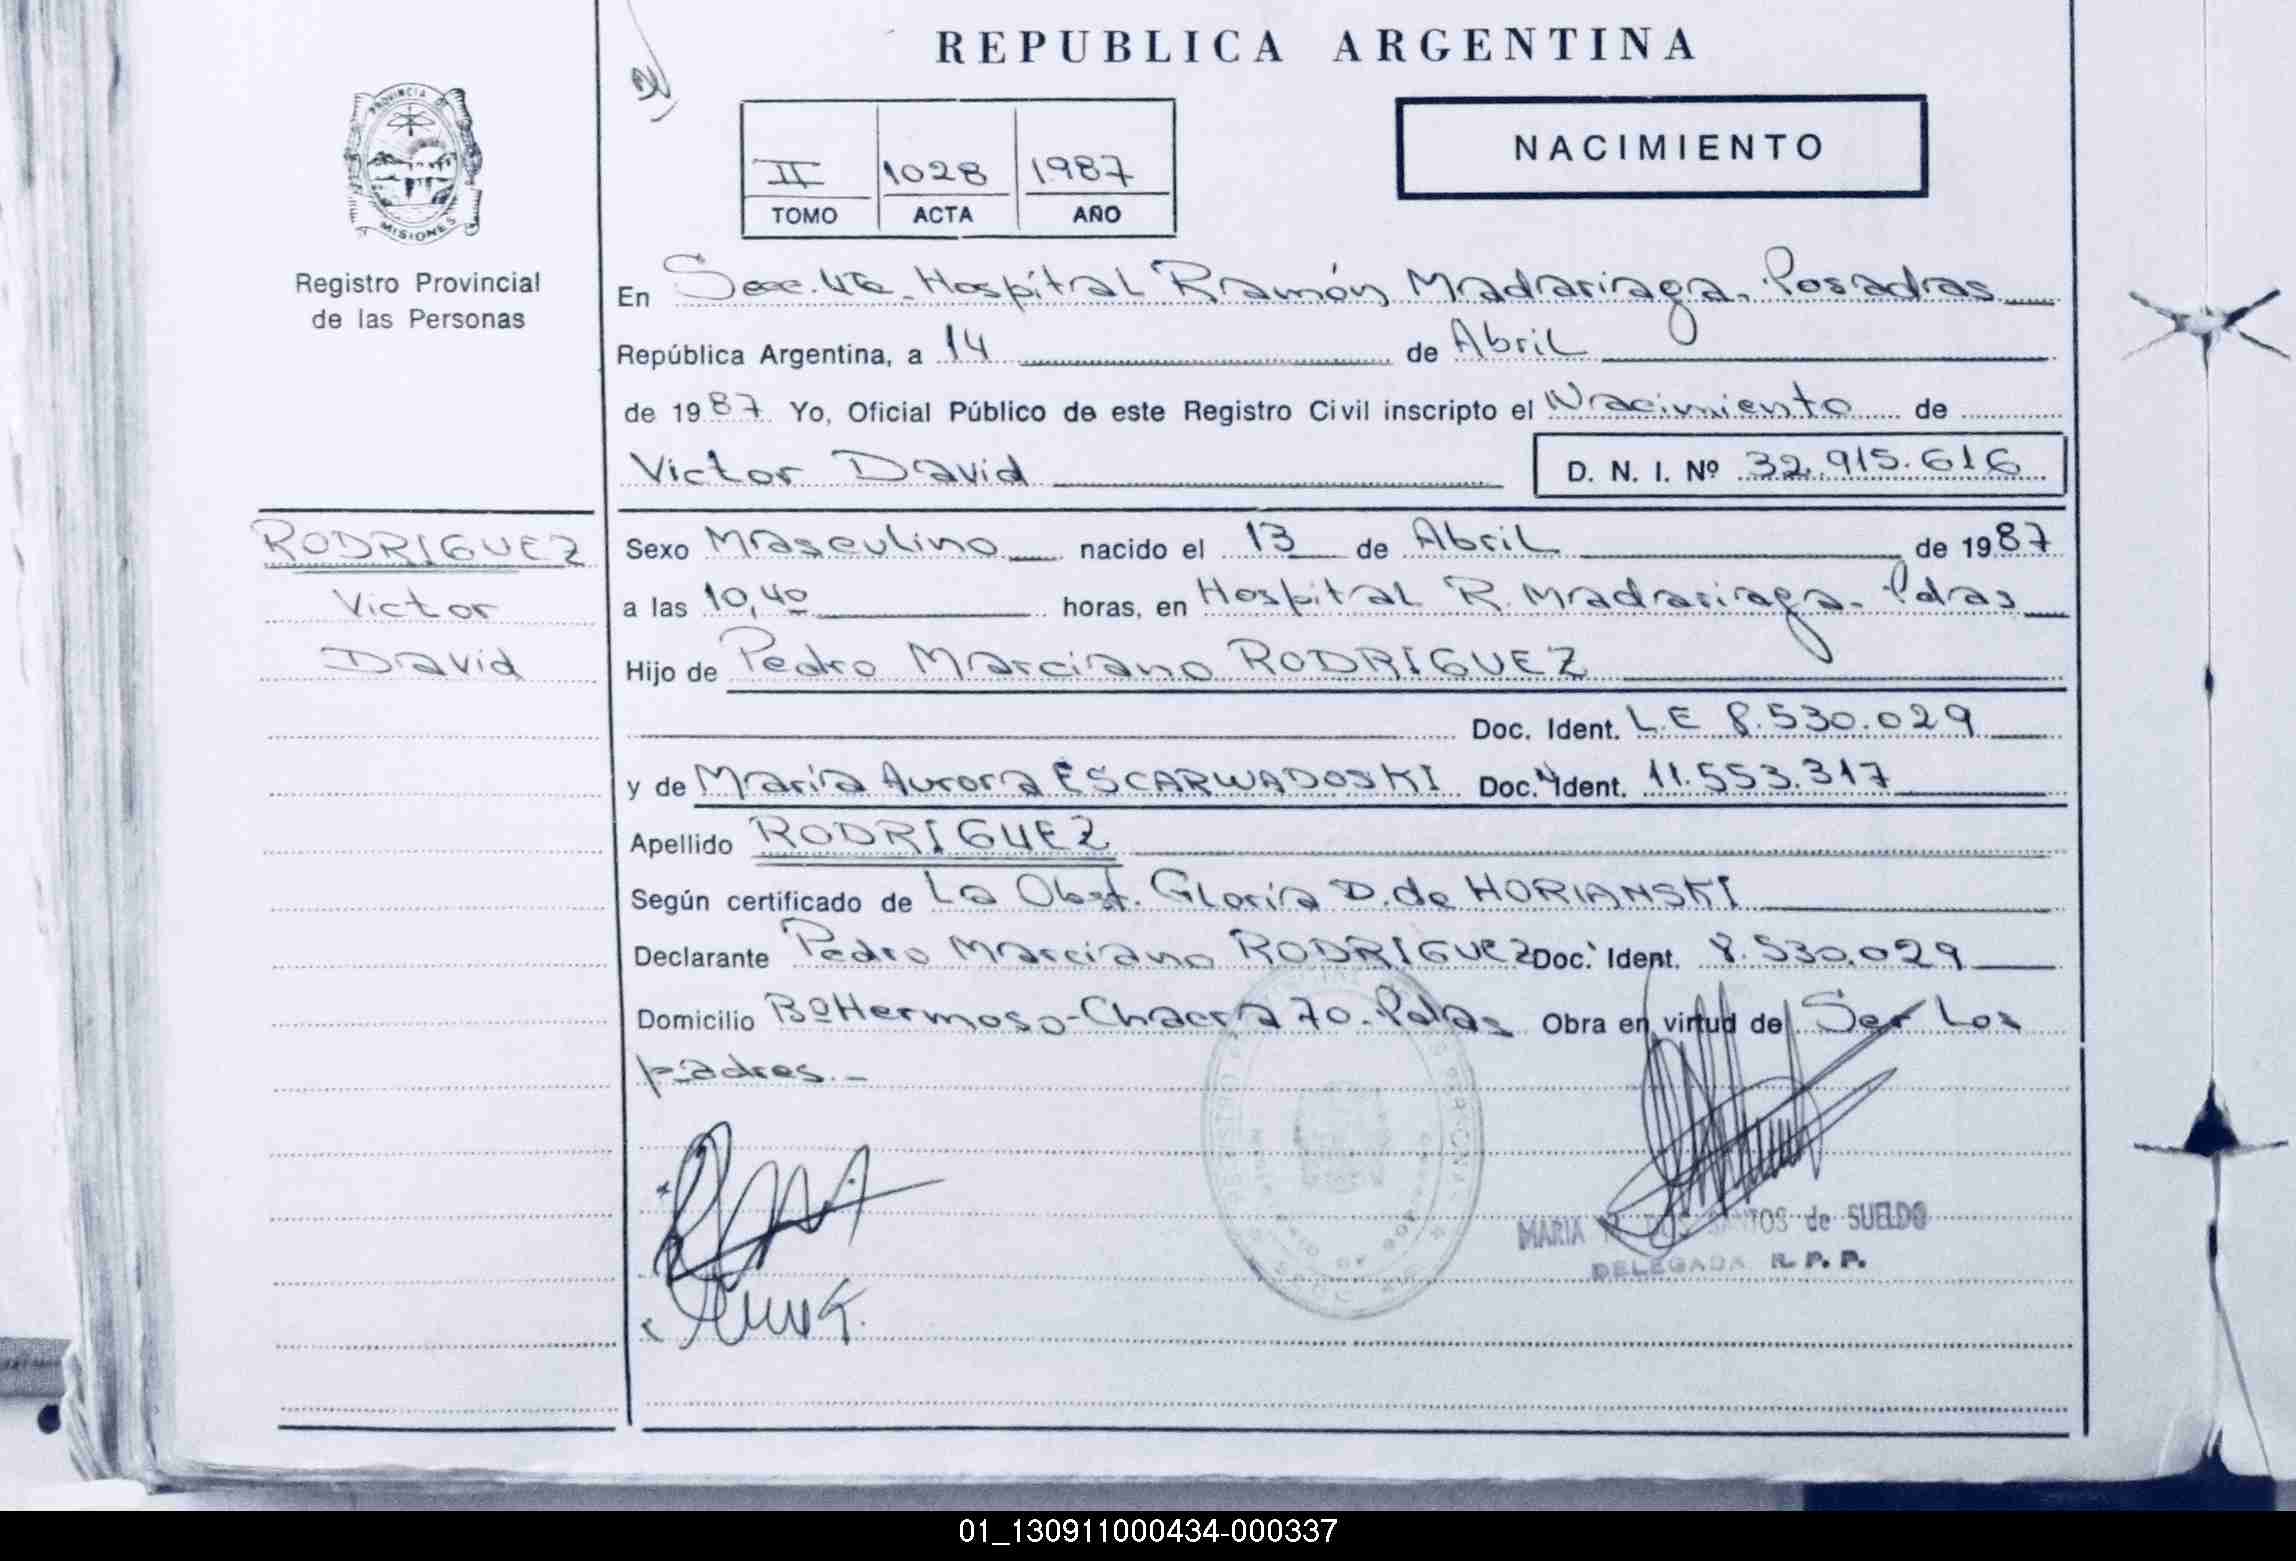 REPUBLICA ARGENTINA
PROVINCIA DE
MISIONES
Registro Provincial
de las Personas
II 1028 1987
TOMO ACTA AÑO
NACIMIENTO
En Secc. 4ta. Hospital Ramón Madariaga. Posadas
República Argentina, a 14 de Abril
de 1987 Yo, Oficial Público de este Registro Civil inscripto el Nacimiento de
Victor David D. N. I. Nº 32.915.616
RODRIGUEZ
Victor
David
Sexo Masculino nacido el 13 de Abril de 1987
a las 10,40 horas, en Hospital R. Madariaga. Pdas
Hijo de Pedro Marciano RODRIGUEZ
Doc. Ident. L.E 8.530.029
y de María Aurora ESCARWADOSKI Doc. Ident. 11.553.317
Apellido RODRIGUEZ
Según certificado de La Obst. Gloria D. de HORIANSKI
Declarante Pedro Marciano RODRIGUEZ Doc. Ident. 8.530.029
Domicilio Bº Hermoso-Chacra 70. Pdas Obra en virtud de Ser Los
padres.-
MARIA SANTOS de SUELDO
DELEGADA R. P. P.
01_130911000434-000337